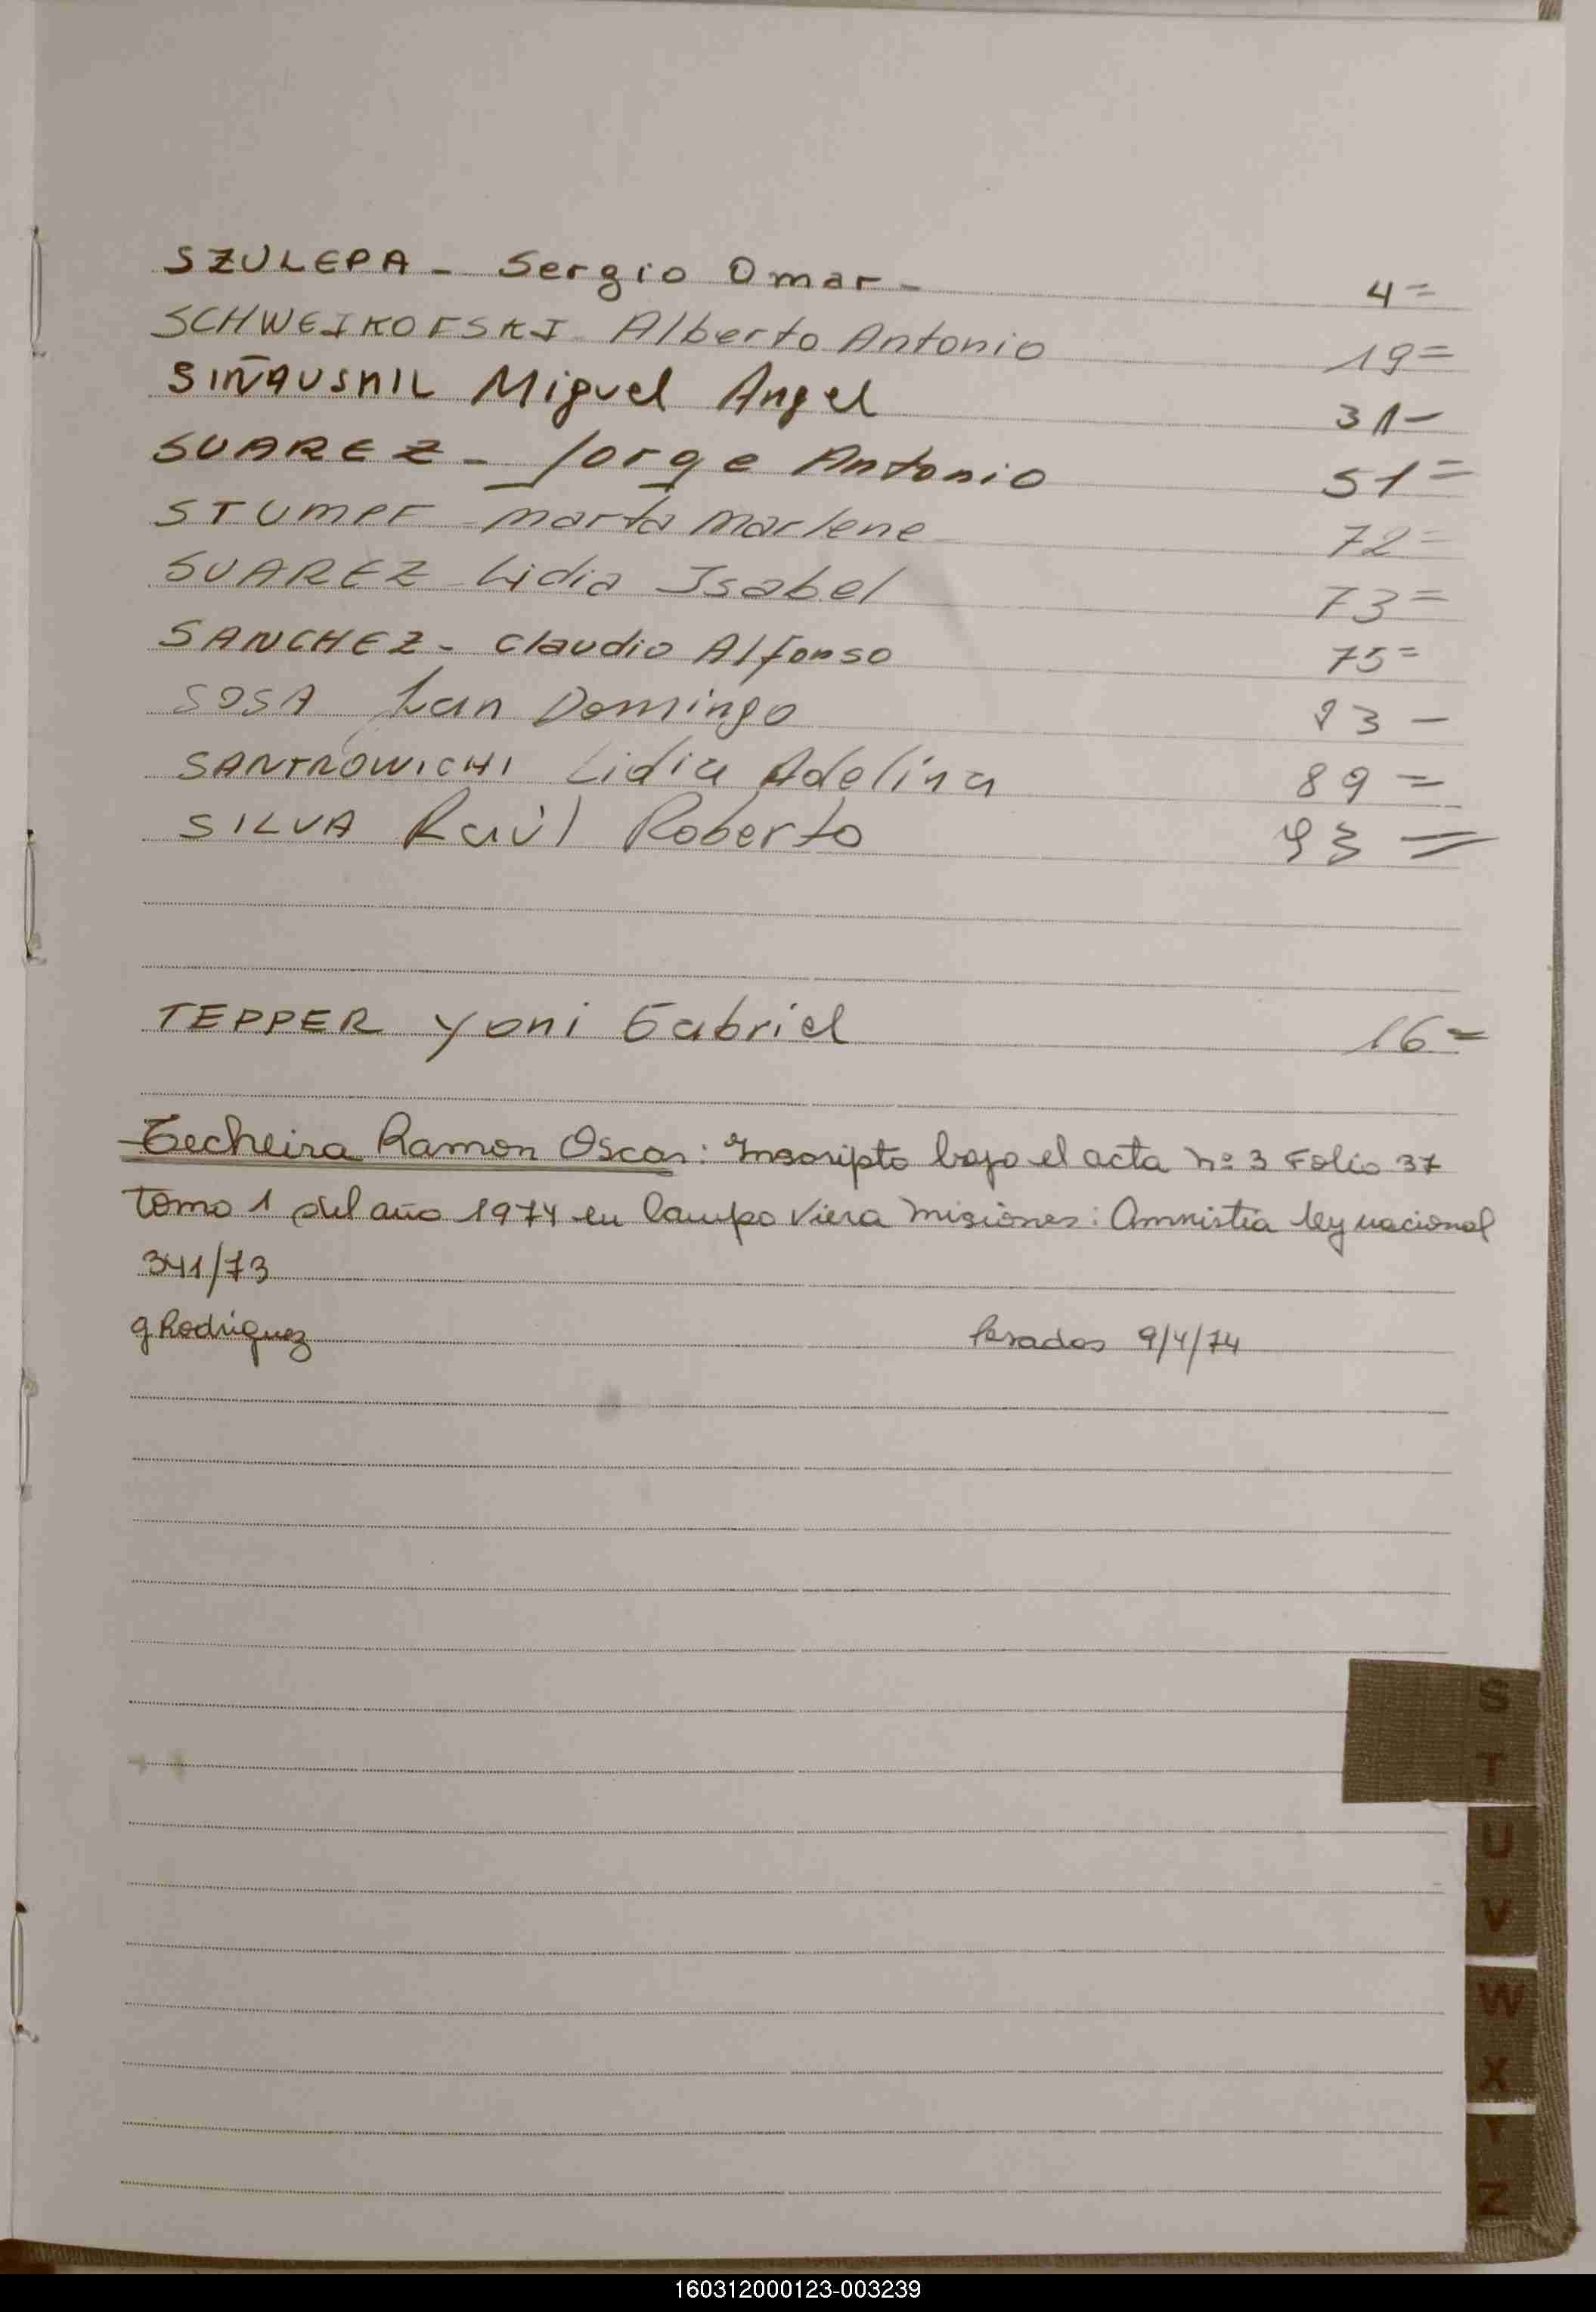 SZULEPA - Sergio Omar - 4 =
SCHWEIKOFSKI Alberto Antonio 19 =
SIÑAUSKIL Miguel Angel 31 -
SUAREZ - Jorge Antonio 51 =
STUMPF Marta Marlene 72 =
SUAREZ Lidia Isabel 73 =
SANCHEZ - Claudio Alfonso 75 =
SOSA Juan Domingo 83 -
SANTROWICHI Lidia Adelina 89 =
SILVA Raúl Roberto 93 =
TEPPER Yoni Gabriel 16 =
Techeira Ramon Oscar: Inscripto bajo el acta nº 3 Folio 37
tomo 1 del año 1974 en Campo Viera Misiones: Amnistia ley nacional
341/73
g Rodriguez Posadas 9/4/74
S
T
U
V
W
X
Y
Z
160312000123-003239